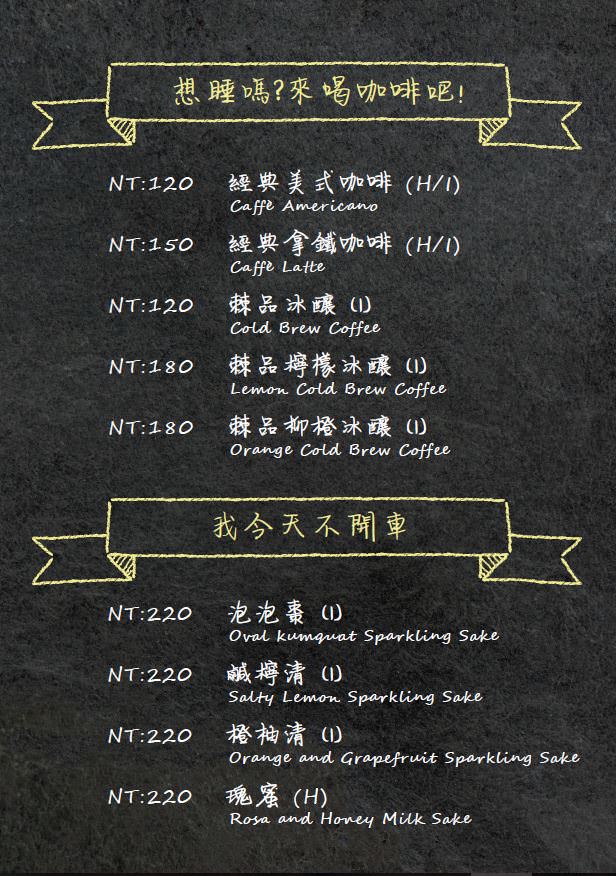 想睡嗎?來喝咖啡吧!
NT:120 經典美式咖啡 (H/I)
Caffè Americano
NT:150 經典拿鐵咖啡 (H/I)
Caffè Latte
NT:120 棘品冰釀 (I)
Cold Brew Coffee
NT:180 棘品檸檬冰釀 (I)
Lemon Cold Brew Coffee
NT:180 棘品柳橙冰釀 (I)
Orange Cold Brew Coffee
我今天不開車
NT:220 泡泡棗 (I)
Oval kumquat Sparkling Sake
NT:220 鹹檸清 (I)
Salty Lemon Sparkling Sake
NT:220 橙柚清 (I)
Orange and Grapefruit Sparkling Sake
NT:220 瑰蜜 (H)
Rosa and Honey Milk Sake